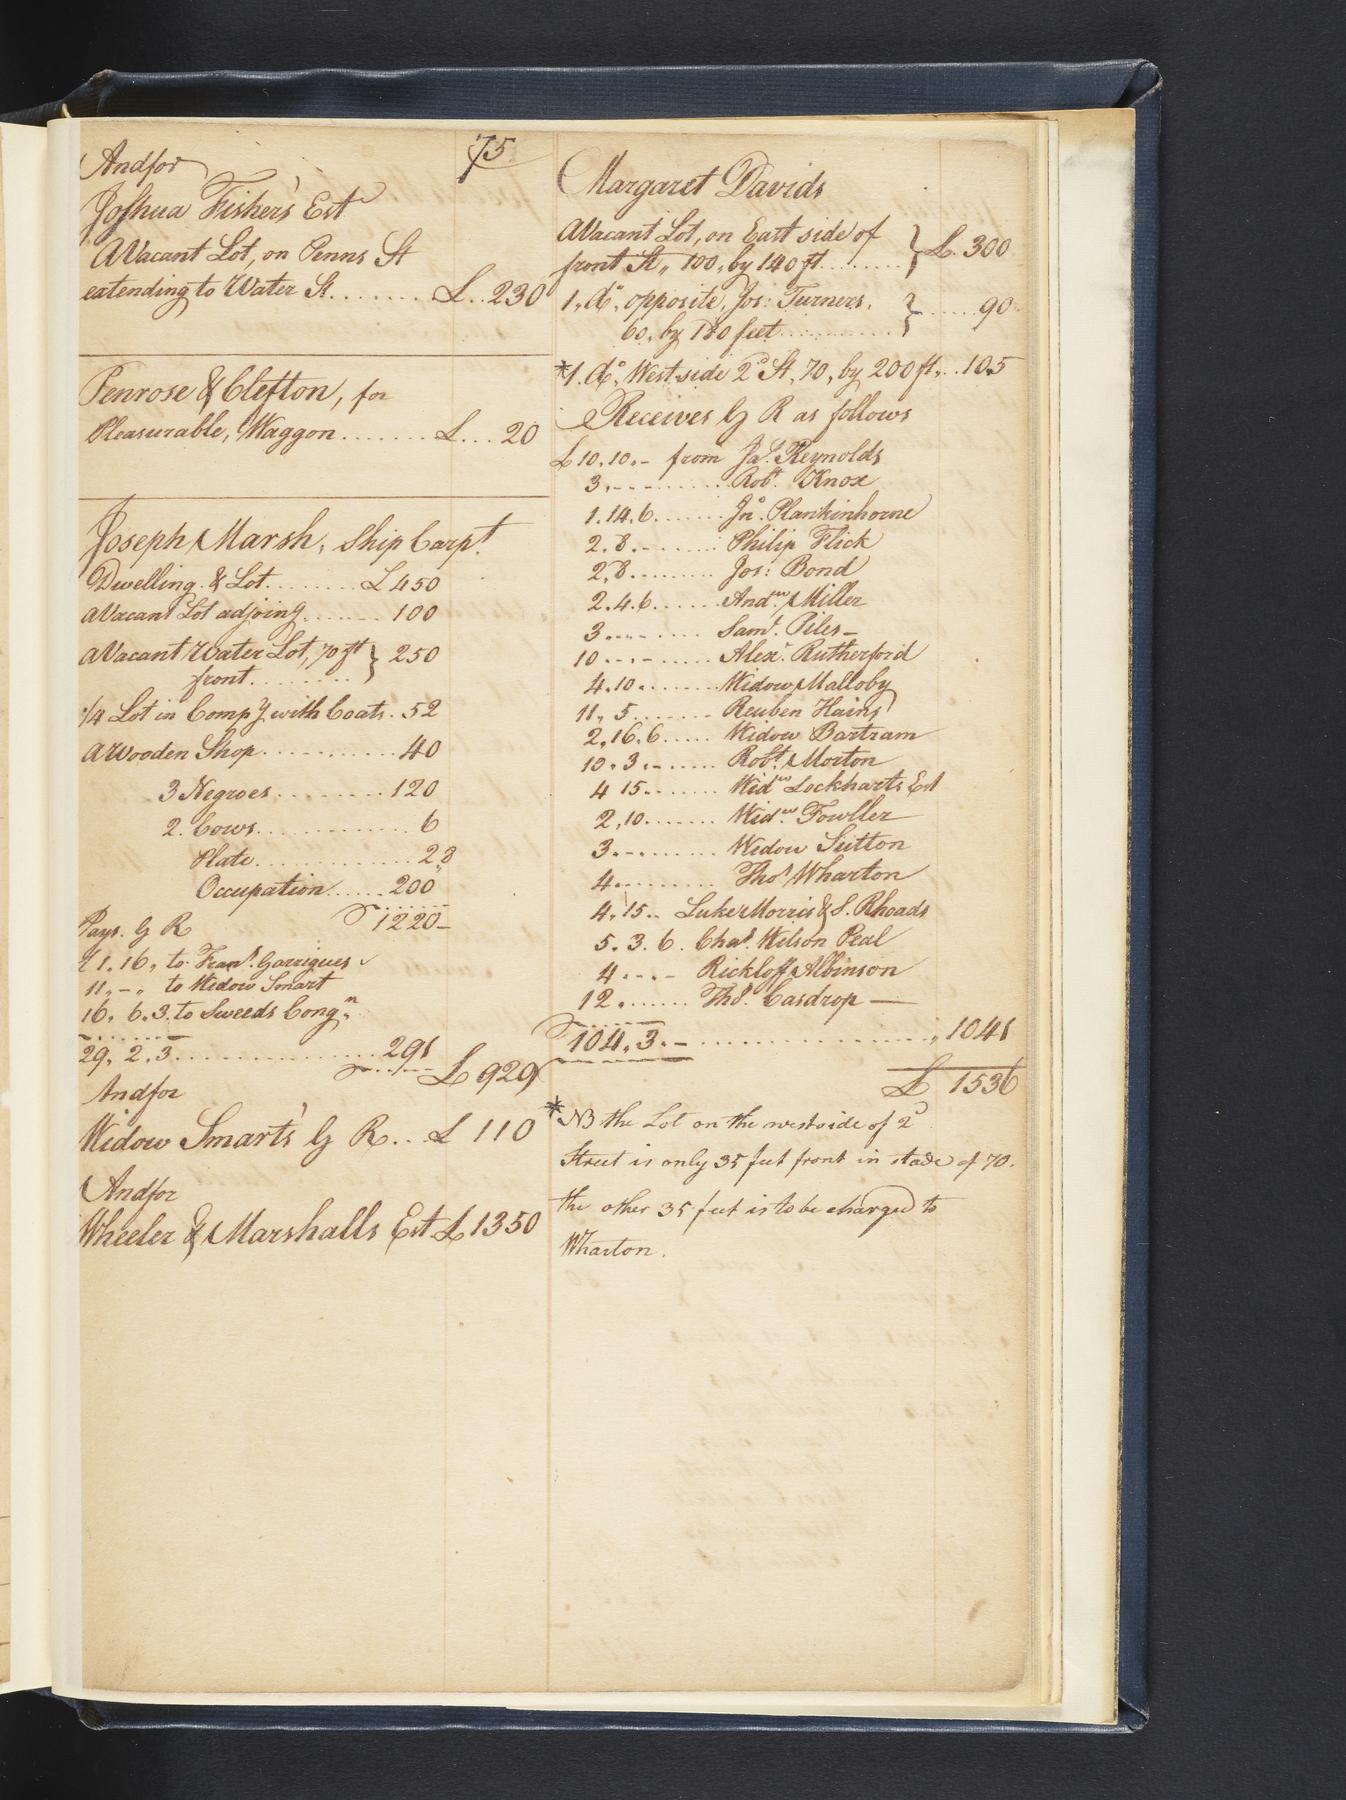 75
Andfor
Joshua Fisher's Est
A Vacant Lot, on Penns St
extending to Water St....... £..230
Penrose & Clefton, for
Pleasurable, Waggon....... £... 20
Joseph Marsh, Ship Carpt.
Dwelling & Lot........ £450
a Vacant Lot adjoing....... 100
a Vacant Water Lot, 70 ft } 250
front........
1/4 Lot in Compy with Coats. 52
a Wooden Shop........... 40
3 Negroes......... 120
2. Cows............. 6
Plate............. 28
Occupation...... 200
Pays. G R 1220-
£1.16, to Frans. Garrigues
11,-, to Widow Smart
16, 6.3. to Sweeds Congn
29, 2, 3............... 291
£ 929
Andfor
Widow Smart's G R... £ 110
Andfor
Wheeler & Marshalls Est £ 1350
Margaret Davids
A Vacant Lot, on East side of
front St, 100, by 140 ft........ } £. 300
1, do, opposite, Jos: Turners,
60, by 180 feet........... } ..... 90
*1. do, West side 2d St, 70, by 200 ft,.. 105
Receives G R as follows
£10.10.- from Jas. Reynolds
3,.-......... Robt. Knox
1.14.6....... Jno. Plankinhorne
2.8.-....... Philip Flick
2,8......... Jos: Bond
2.4.6...... Andw. Miller
3......... Saml. Piles-
10...-...... Alexr. Rutherford
4.10........ Widow Malloby
11, 5....... Reuben Hains
2,16.6..... Widow Bartram
10.3.-..... Robt. Morton
4 15........ Widw Lockharts Est
2,10....... Widw. Fowller
3.-........ Widow Sutton
4.......... Thos Wharton
4,15.. Luke Morris & S. Rhoads
5. 3. 6. Chas. Wilson Peal
4...- Rickloff Albinson
12....... Thos. Casdrop —
104,3.-....................., 1041
£ 1536
* NB the Lot on the westside of 2d
Street is only 35 feet front in stade of 70.
the other 35 feet is to be charged to
Wharton.